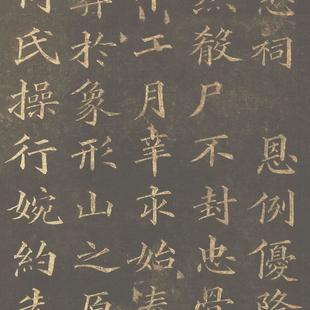 祠 恩例優
殺尸不封忠骨
工月求始春
於象形山之原
氏操行婉約